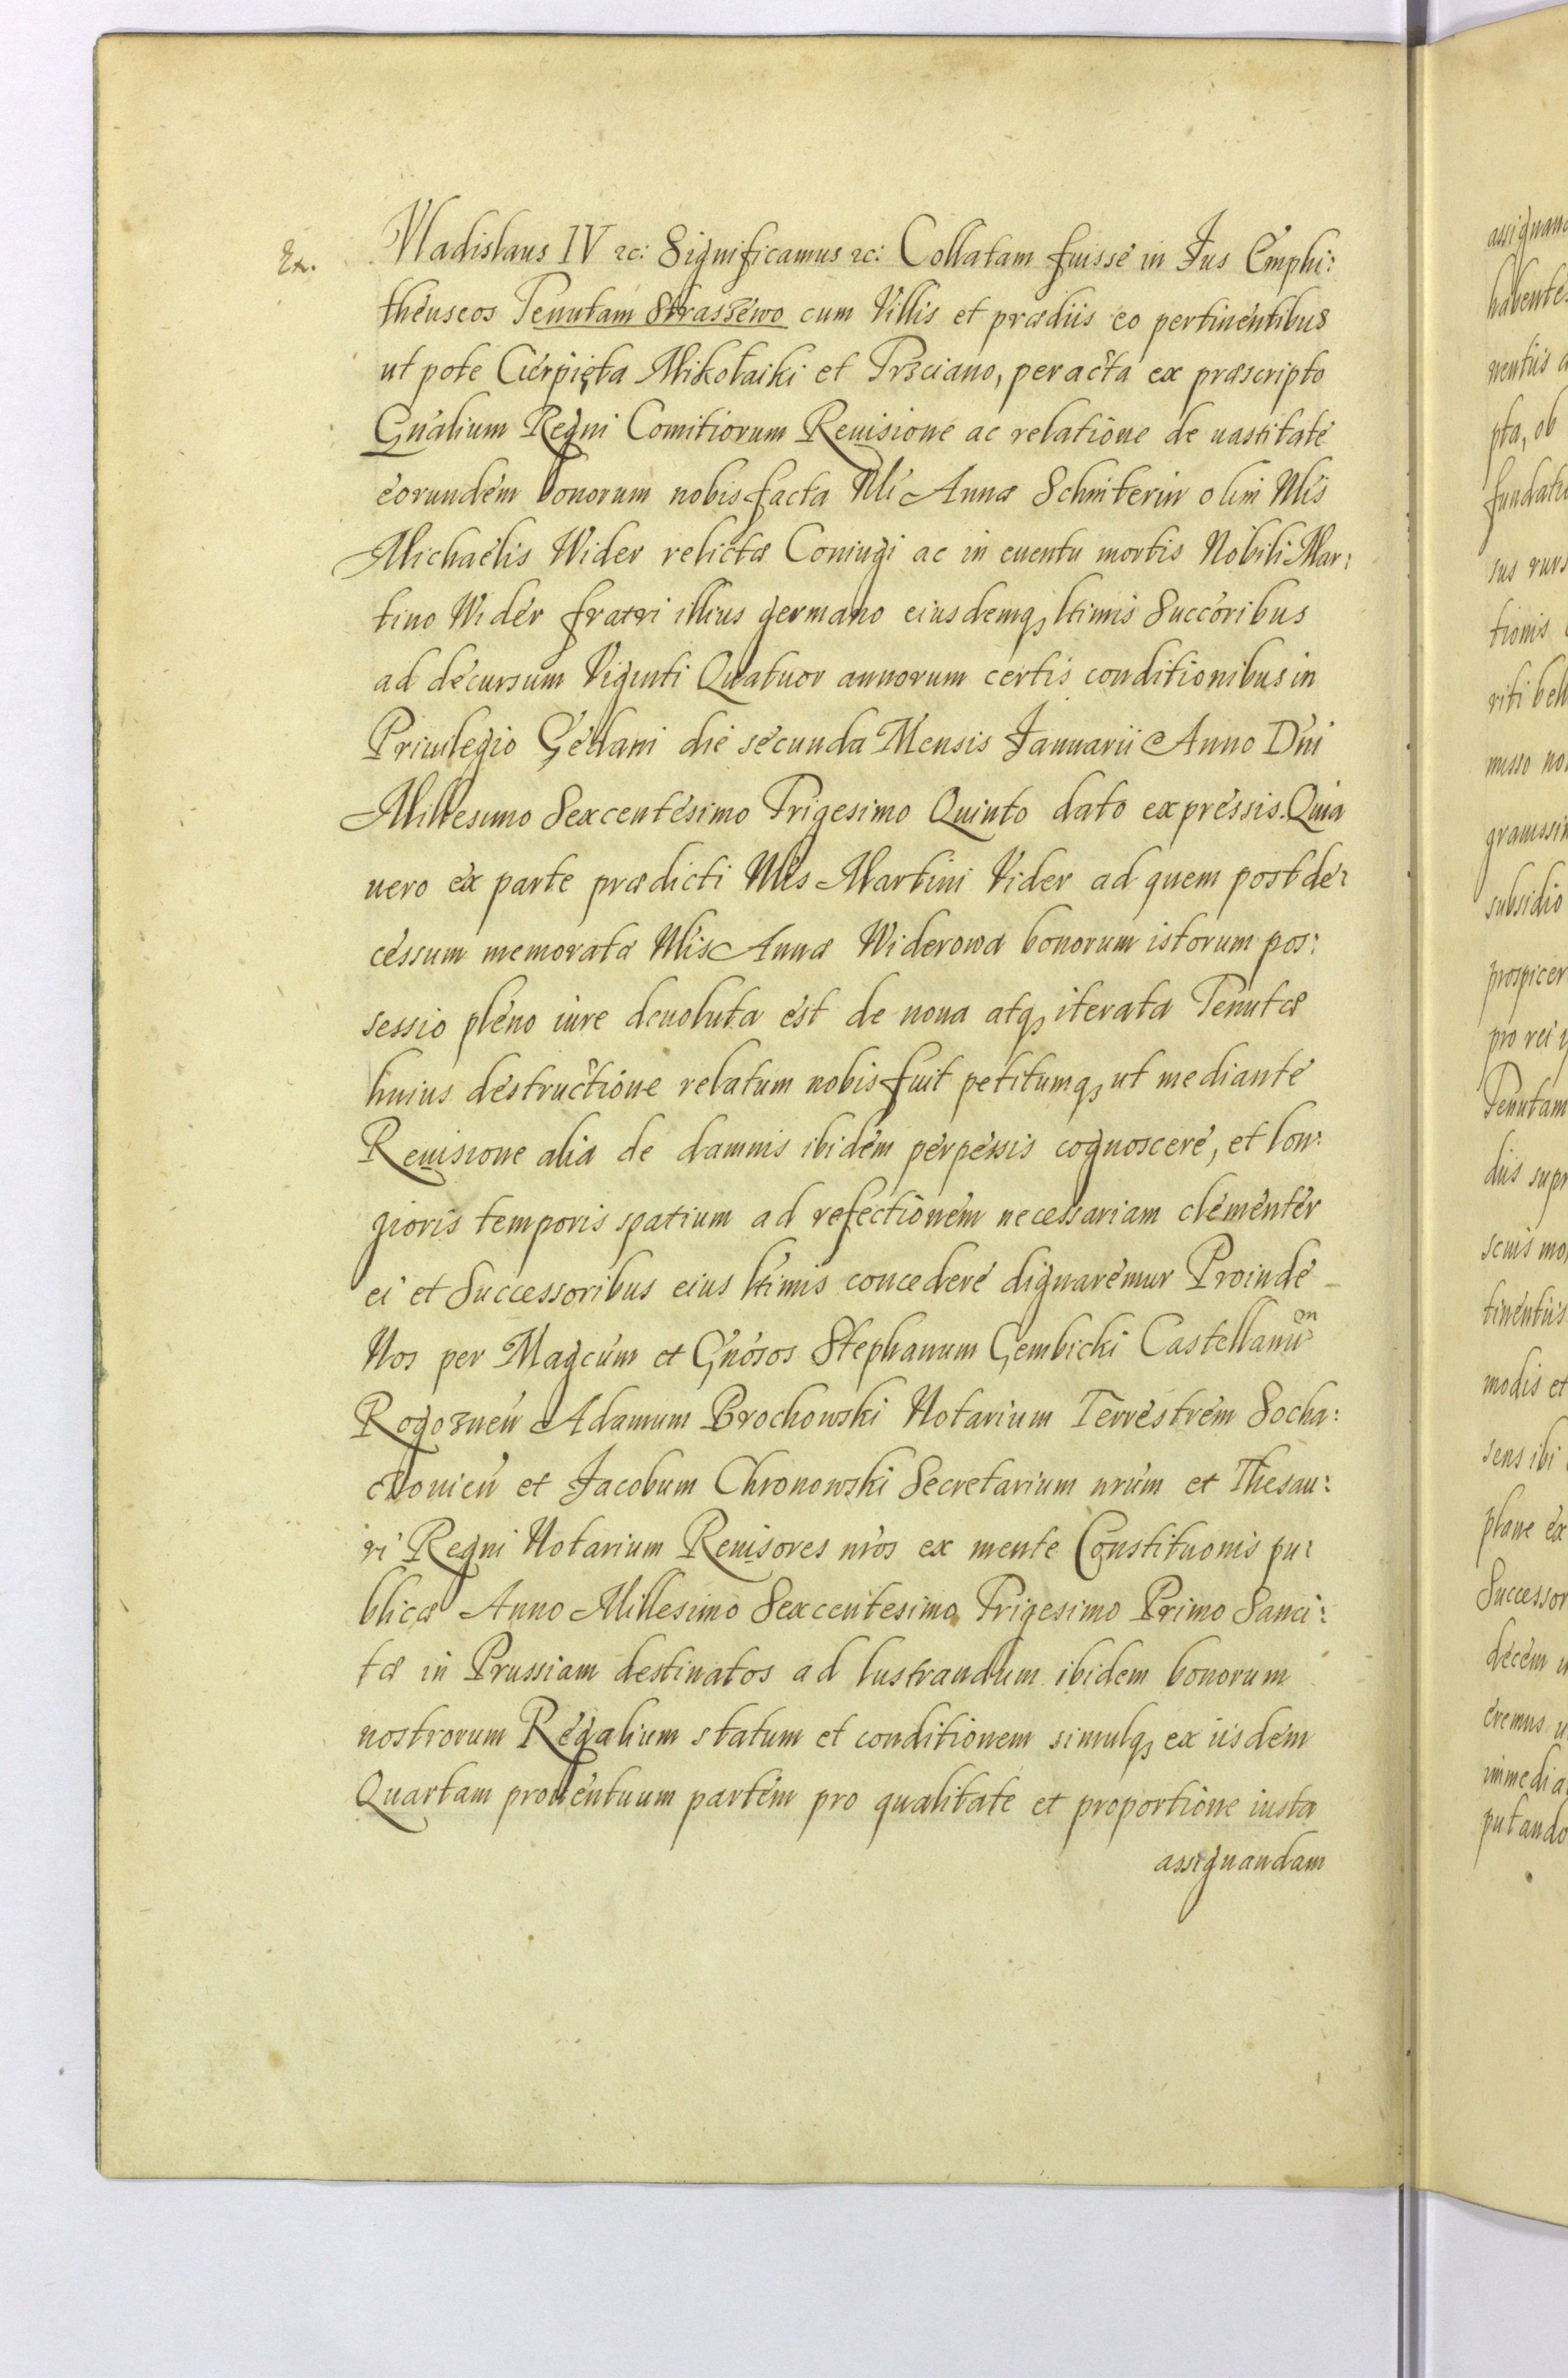 Ex.
Vladislaus IV ꝛc: Significamus ꝛc: Collatam fuisse in Jus Emphi:
theuseos Tenutam Straszewo cum Villis et prædiis eo pertinentibus
ut pote Cierpięta Mikołaiki et Trzciano, peracta ex præscripto
Gnálium Regni Comitiorum Reuisione ac relatione de uastitate
eorundem bonorum nobis facta Nli Annæ Schniterin olim Nlis
Michaelis Wider relictæ Coniugi ac in euentu mortis Nobili Mar:
tino Wider fratri illius germano eiusdemqꝫ ltimis Succoribus
ad decursum Viginti Quatuor annorum certis conditionibus in
Priuilegio Gedani die secunda Mensis Januarii Anno Dni
Millesimo Sexcentesimo Trigesimo Quinto dato expressis. Quia
uero ex parte prædicti Nlis Martini Vider ad quem post de:
cessum memorata Nlis Annæ Widerowa bonorum istorum pos:
sessio pleno iure deuoluta est de noua atqꝫ iterata Tenutæ
huius destructione relatum nobis fuit petitumqꝫ ut mediante
Reuisione alia de damnis ibidem perpessis cognoscere, et lon:
gioris temporis spatium ad refectionem necessariam clementer
ei et Successoribus eius ltimis concedere dignaremur Proinde
Nos per Magcum et Gnosos Stephanum Gembicki Castellanum
Rogoznen Adamum Brochowski Notarium Terrestrem Socha:
czouien et Jacobum Chronowski Secretarium nrum et Thesau:
ri Regni Notarium Reuisores nros ex mente Constituonis pu:
blicæ Anno Millesimo Sexcentesimo Trigesimo Primo Sanci:
tæ in Prussiam destinatos ad lustrandum ibidem bonorum
nostrorum Regalium statum et conditionem simulqꝫ ex iisdem
Quartam prouentuum partem pro qualitate et proportione iusta
assignandam